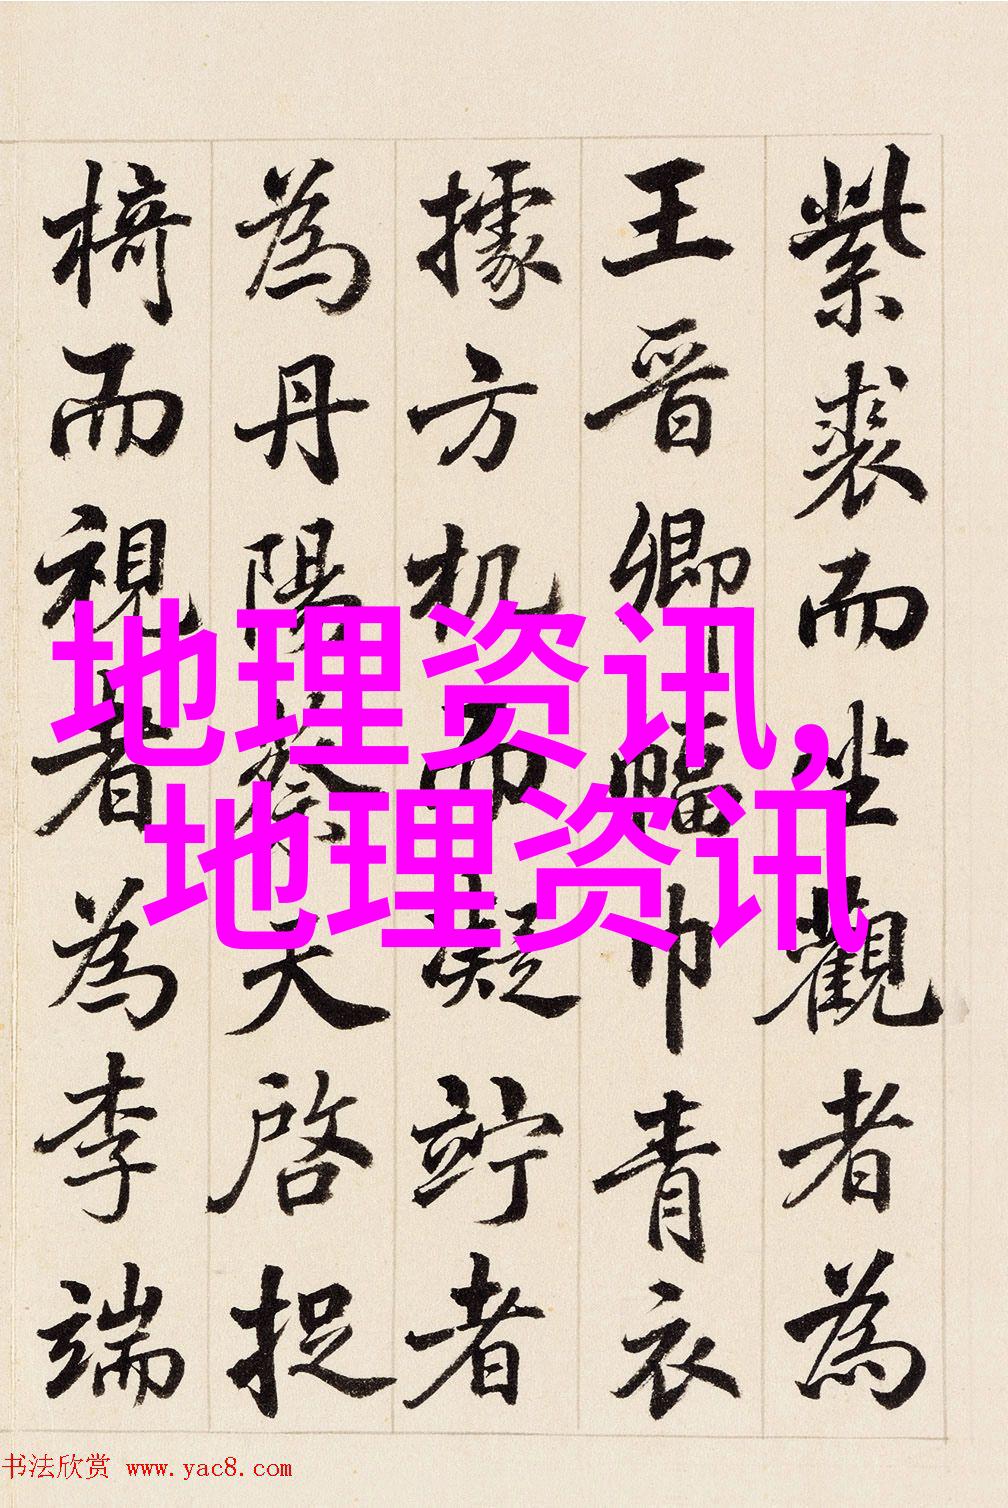 紫裘而坐觀者為
王晋卿幅巾青衣
據方机而凝竚者
為丹陽蔡天啓捉
椅而視者為李端
地理资讯,
地理资讯
书法欣赏 www.yac8.com